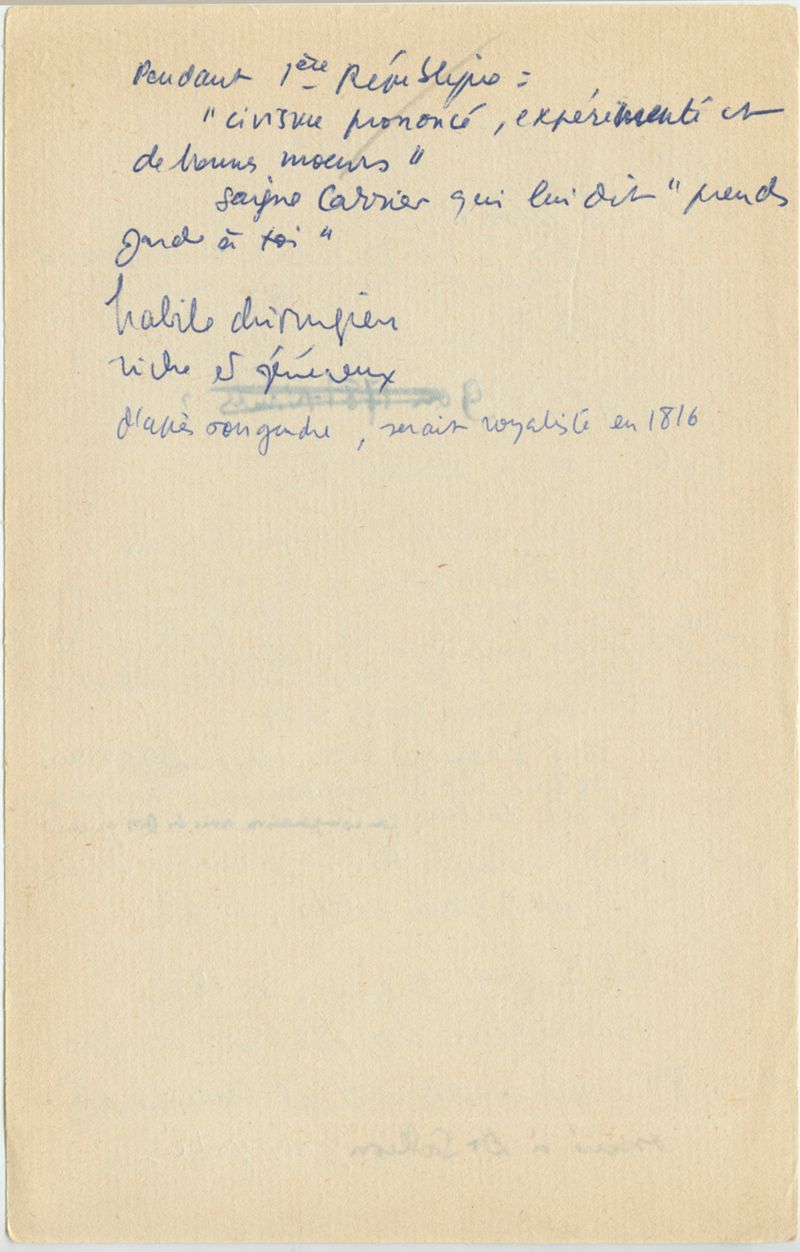 Pendant 1ère République =
"civisme prononcé, expérimenté et
de bonnes moeurs"
Saigne Carrier qui lui dit "prends
garde à toi"
habile chirurgien
riche et généreux
d'après son gendre, serait royaliste en 1816